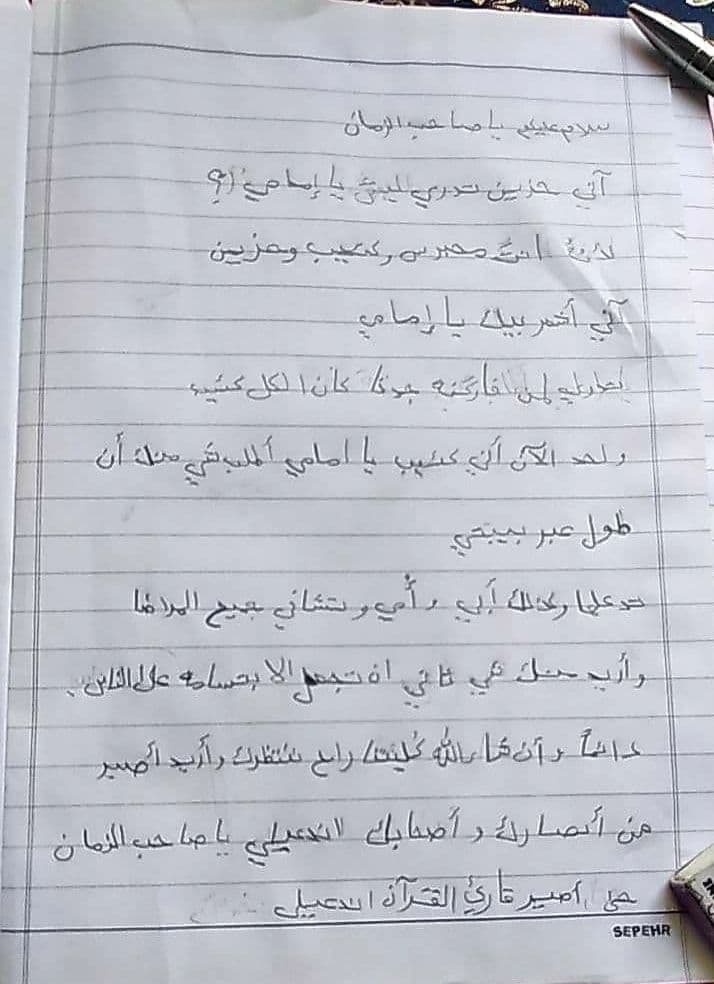 سلام عليكم يا صاحب الزمان
آني حزين تدري ليش يا إمامي (؟
لأن انت محبوس وكئيب وحزين
آني أخبر بيك يا إمامي
جدي كان الكل شيء
ولحد الآن آني كئيب يا امامي أطلب شي منك أن
طول عمر بيبتي
تدعيلها وكذلك أبي وأمي وتشافي جميع المرضا
وأريد منك شي ثاني ان تجعل الابتسامة على الناس
دائماً وأن شاءالله كليتنا راح ننتظرك وأريد أصير
من أنصارك وأصحابك اندعيلي يا صاحب الزمان
حتى أصير قارئ القرآن اندعيلي
SEPEHR